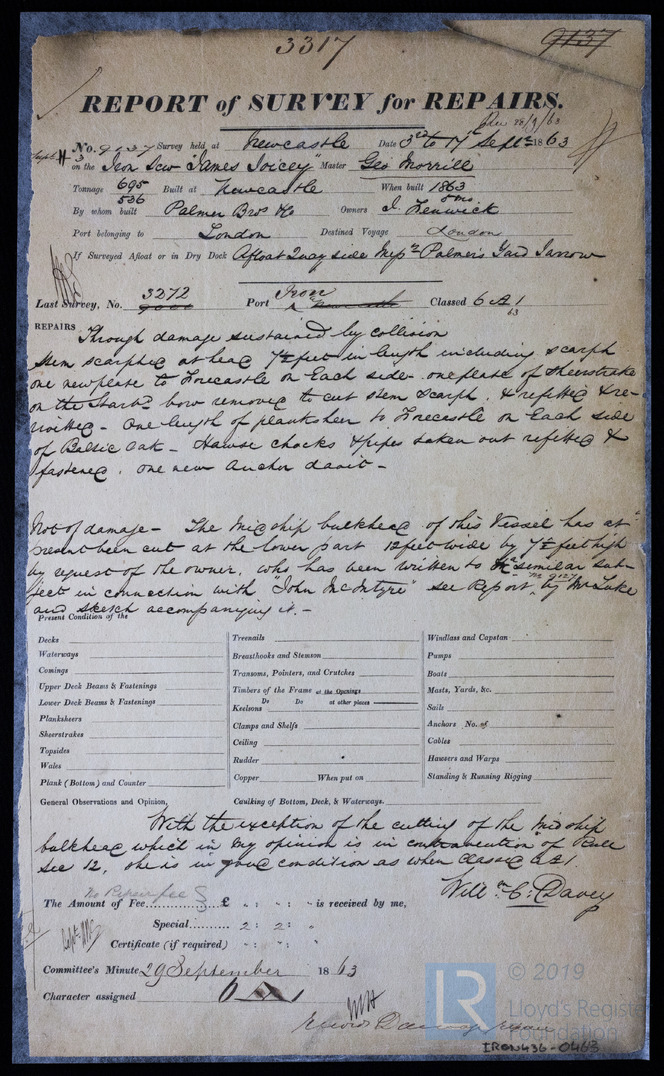 3317
9137
REPORT of SURVEY for REPAIRS.
No. 9137 Survey held at Newcastle Date 3rd to 17th Septr 1863
on the Iron Scw "James Joicey" Master Geo Morrill
Tonnage 695 Built at Newcastle When built 1863
536
By whom built Palmer Bros & Co Owners J. Fenwick
Port belonging to London Destined Voyage London
If Surveyed Afloat or in Dry Dock Afloat Quay side Messrs Palmer's Yard Jarrow
Last Survey, No. 3272 Port Iron Classed 6 A 1
63
REPAIRS Through damage sustained by collision
Stem scarphed at head 7½ feet in length including scarph
one new plate to Forecastle on Each side. one plate of Sheerstrake
on the Starbd bow removed to cut stem scarph, & refitted & re-
rivitted - One length of planksheer to Forecastle on Each side
of Baltic Oak - Hawse chocks & pipes taken out refitted &
fastened. one new Anchor davit -
Not of damage - The Midship bulkhead of this Vessel has at
present been cut at the lower part 12 feet wide by 7½ feet high
by request of the owner, who has been written to in a similar sub-
ject in connection with "John McIntyre" see Report No 9127 by Mr Luke
and sketch accompanying it. -
Present Condition of the
Decks
Waterways
Comings
Upper Deck Beams & Fastenings
Lower Deck Beams & Fastenings
Planksheers
Sheerstrakes
Topsides
Wales
Plank (Bottom) and Counter
Treenails
Breasthooks and Stemson
Transoms, Pointers, and Crutches
Timbers of the Frame at the Openings
Do Do at other places
Keelsons
Clamps and Shelfs
Ceiling
Rudder
Copper When put on
Windlass and Capstan
Pumps
Boats
Masts, Yards, &c.
Sails
Anchors No. of
Cables
Hawsers and Warps
Standing & Running Rigging
General Observations and Opinion, Caulking of Bottom, Deck, & Waterways.
With the exception of the cutting of the Midship
bulkhead which in my opinion is in contravention of Rule
Sec 12, she is in good condition as when classed 6A1.
Willm C: Davey
The Amount of Fee £ " : " : " is received by me,
Special 2 : 2 : "
Certificate (if required) " : " : "
Committee's Minute 29 September 1863
Character assigned 6 A 1
LR
© 2019
Lloyd's Register
Foundation
IRON436-0463